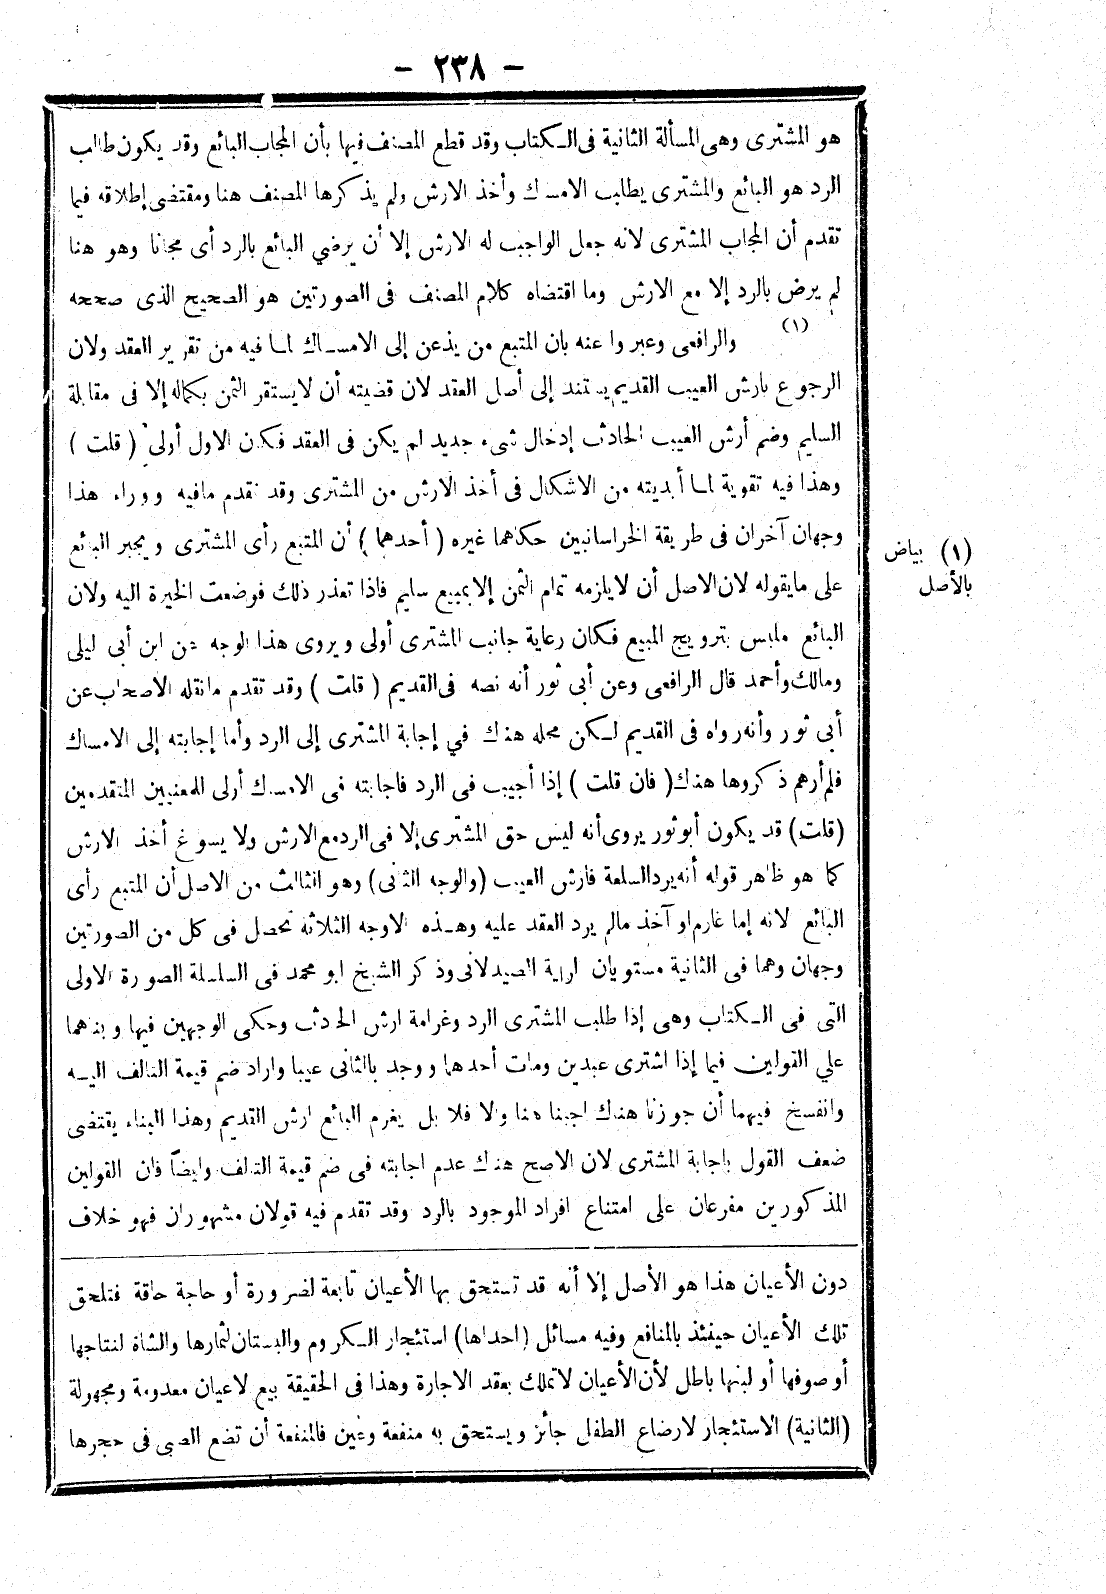 - ٢٣٨ -
هو المشترى وهى المسألة الثانية فى الكتاب وقد قطع المصنف فيها بأن المجاب البائع وقد يكون طالب
الرد هو البائع والمشترى يطلب الامساك وأخذ الارش ولم يذكرها المصنف هنا ومقتضى إطلاقه فيما
تقدم أن المجاب المشترى لانه جعل الواجب له الارش إلا أن يرضي البائع بالرد أى مجانا وهو هنا
لم يرض بالرد إلا مع الارش وما اقتضاه كلام المصنف فى الصورتين هو الصحيح الذى صححه
(١) والرافعى وعبروا عنه بان المتبع من يدعن إلى الامساك لما فيه من تقرير العقد ولان
الرجوع بارش العيب القديم يستند إلى أصل العقد لان قضيته أن لا يستقر الثمن بكماله إلا فى مقابلة
السليم وضم أرش العيب الحادث إدخال شىء جديد لم يكن فى العقد فكان الاول أولى (قلت)
وهذا فيه تقوية لما أبديته من الاشكال فى أخذ الارش من المشترى وقد تقدم مافيه ووراء هذا
وجهان آخران فى طريقة الخراسانيين حكاهما غيره (أحدهما) أن المتبع رأى المشترى ويجبر البائع
على مايقوله لان الاصل أن لا يلزمه تمام الثمن إلا بمبيع سليم فاذا تعذر ذلك فوضعت الخيرة اليه ولان
البائع ملبس بترويج المبيع فكان رعاية جانب المشترى أولى ويروى هذا الوجه عن ابن أبى ليلى
ومالك وأحمد قال الرافعى وعن أبى ثور أنه نصه فى القديم (قلت) وقد تقدم مانقله الاصحاب عن
أبى ثور وأنه رواه فى القديم لكن محله هناك في إجابة المشترى إلى الرد وأما إجابته إلى الامساك
فلم أرهم ذكروها هناك (فان قلت) إذا أجيب فى الرد فاجابته فى الامساك أولى للمعنيين المتقدمين
(قلت) قد يكون أبو ثور يروى أنه ليس حق المشترى إلا فى الرد مع الارش ولا يسوغ أخذ الارش
كما هو ظاهر قوله أنه يرد السلعة فارش العيب (والوجه الثانى) وهو الثالث من الاصل أن المتبع رأى
البائع لانه إما غارم او آخذ مالم يرد العقد عليه وهذه الاوجه الثلاثة تحصل فى كل من الصورتين
وجهان وهما فى الثانية مستويان الصيدلانى وذكر الشيخ ابو محمد فى السلسلة الصورة الاولى
التى فى الكتاب وهى إذا طلب المشترى الرد وغرامة ارش الحادث وحكى الوجهين فيها وبناهما
علي القولين فيما إذا اشترى عبدين ومات أحدهما ووجد بالثانى عيبا واراد ضم قيمة التالف اليه
وانفسخ فيهما أن جوزنا هناك اجبنا هنا والا فلا بل يغرم البائع ارش القديم وهذا البناء يقتضى
ضعف القول باجابة المشترى لان الاصح هناك عدم اجابته فى ضم قيمة التالف وايضاً فان القولين
المذكورين مفرعان على امتناع افراد الموجود بالرد وقد تقدم فيه قولان مشهوران فهو خلاف
(١) بياض
بالأصل
دون الأعيان هذا هو الأصل إلا أنه قد تستحق بها الأعيان تابعة لضرورة أو حاجة حاقة فتلحق
تلك الأعيان حينئذ بالمنافع وفيه مسائل (احداها) استئجار الكروم والبستان لثمارها والشاة لنتاجها
أو صوفها أو لبنها باطل لأن الأعيان لا تملك بعقد الاجارة وهذا فى الحقيقة بيع لاعيان معدومة ومجهولة
(الثانية) الاستئجار لارضاع الطفل جائز ويستحق به منفعة وعين فالمنفعة أن تضع الصبى فى حجرها